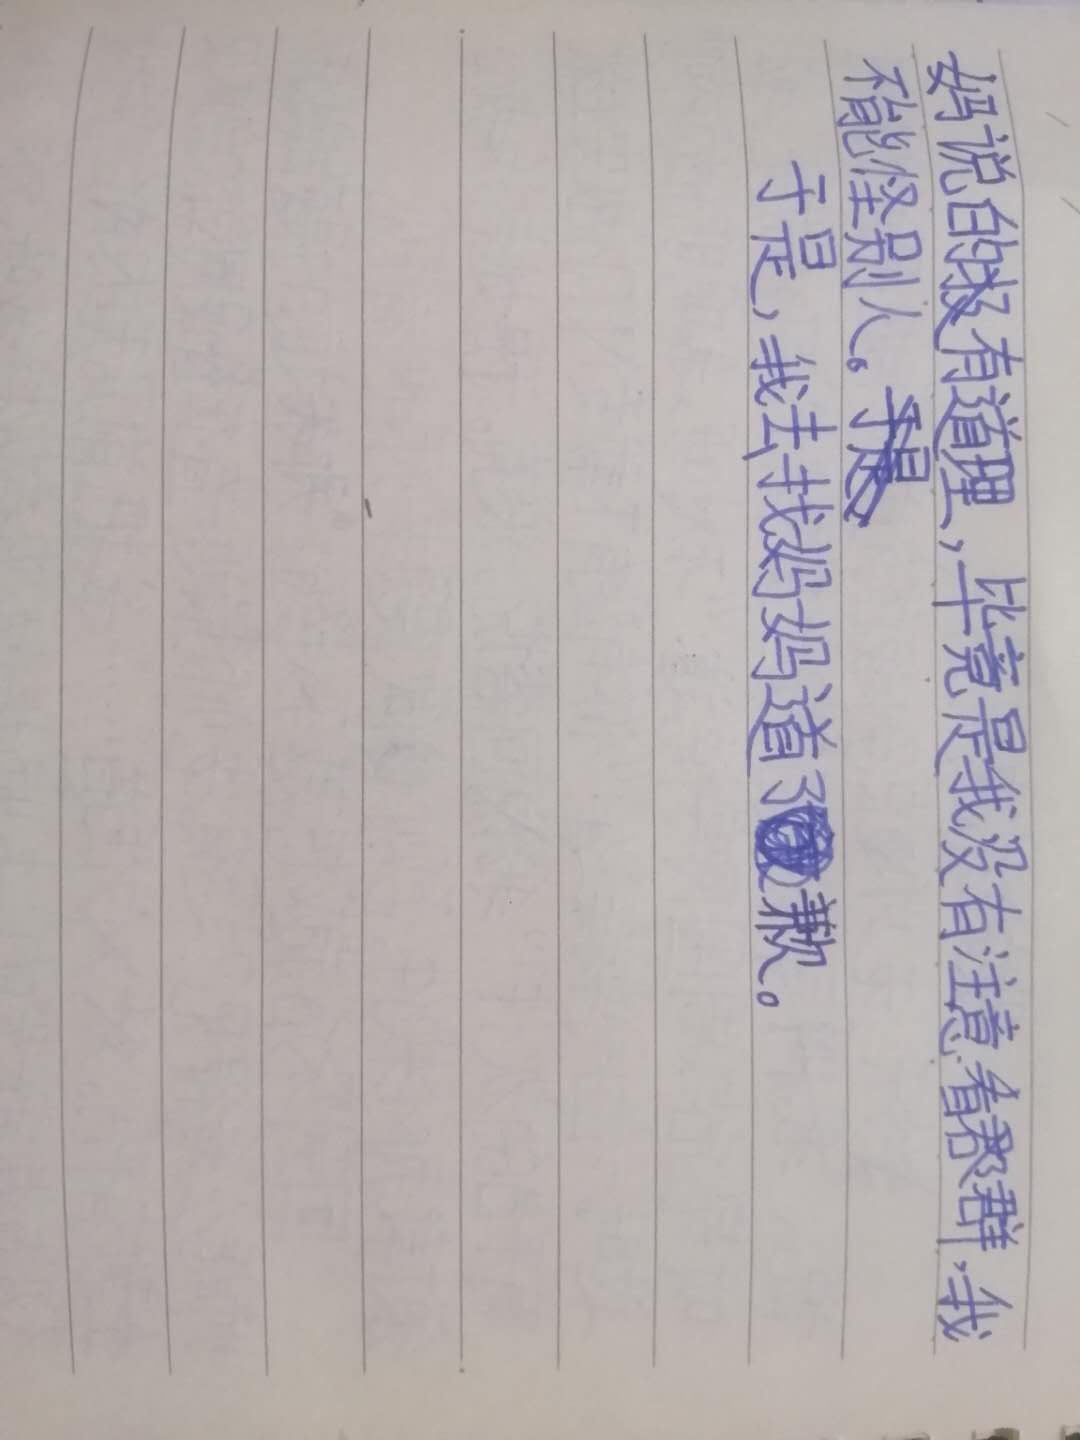 妈说的极有道理，毕竟是我没有注意看群，我
不能怪别人。
于是，我去找妈妈道了歉。